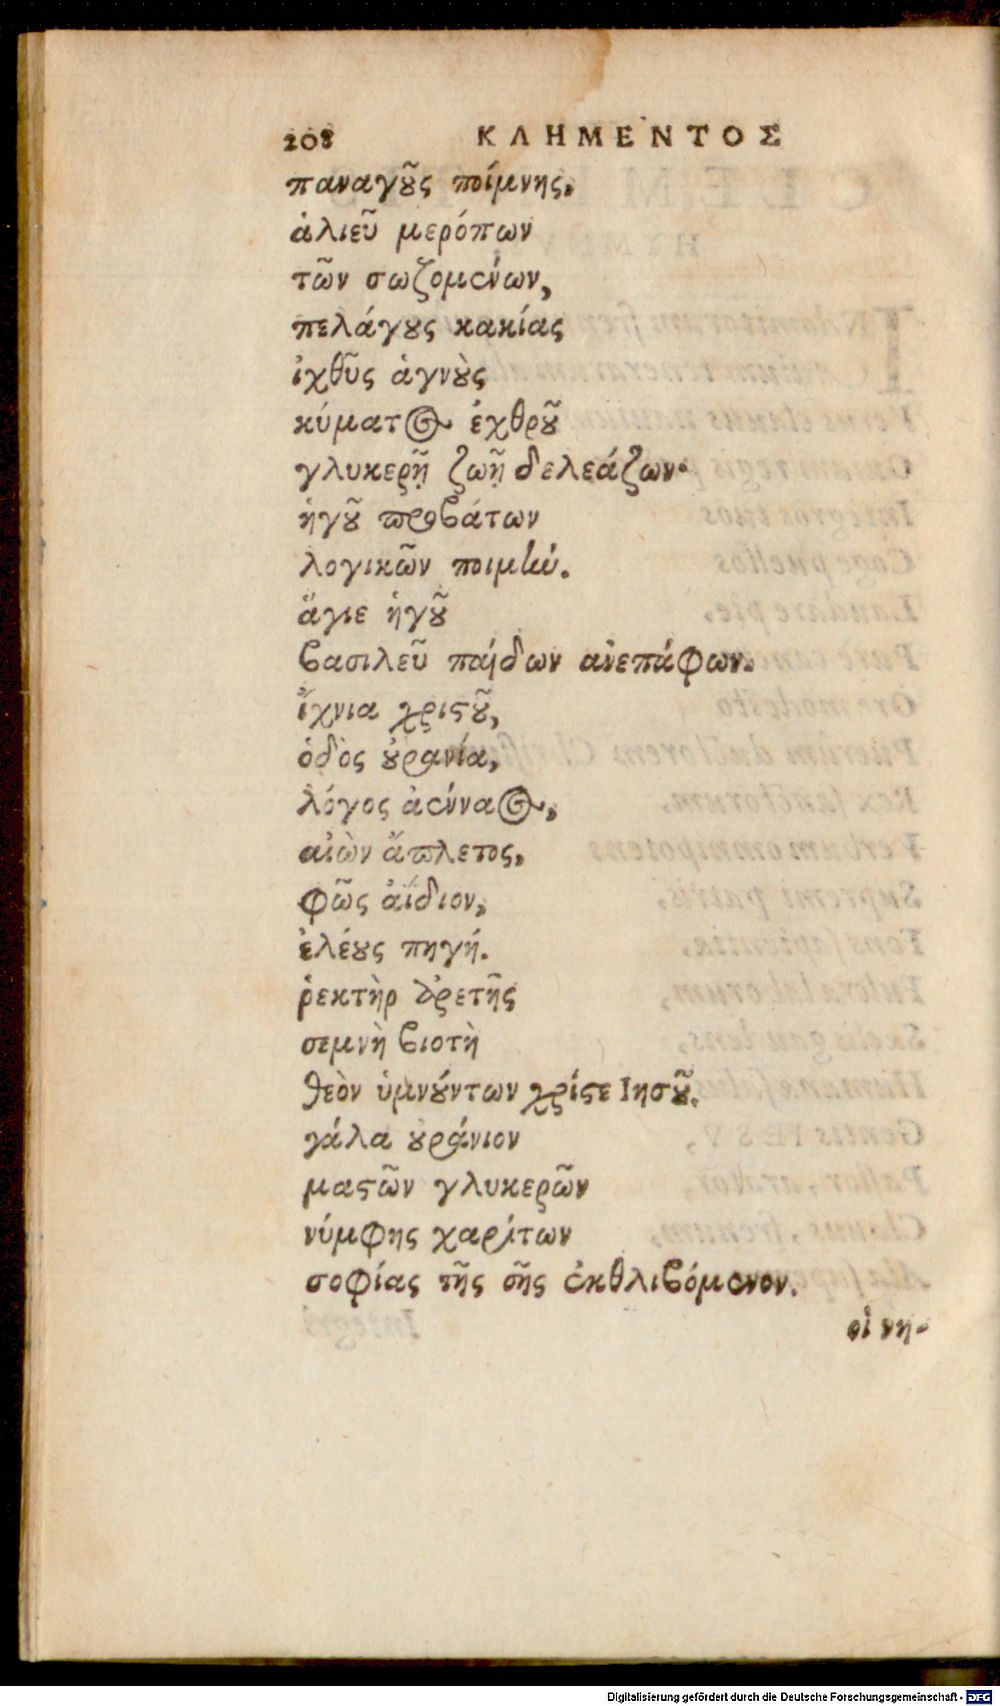 208 ΚΛΗΜΕΝΤΟΣ
παναγοῦς ποίμνης,
ἁλιεῦ μερόπων
τῶν σωζομένων,
πελάγους κακίας
ἰχθῦς ἁγνοὺς
κύματος ἐχθροῦ
γλυκερῇ ζωῇ δελεάζων.
ἡγοῦ προβάτων
λογικῶν ποιμήν.
ἅγιε ἡγοῦ
βασιλεῦ παίδων ἀνεπάφων.
ἴχνια χριστοῦ,
ὁδὸς οὐρανία,
λόγος ἀένναος,
αἰὼν ἄπλετος,
φῶς ἀΐδιον,
ἐλέους πηγή.
ῥεκτὴρ ἀρετῆς
σεμνὴ βιοτὴ
θεὸν ὑμνούντων χριστὲ Ιησοῦ.
γάλα οὐράνιον
μαστῶν γλυκερῶν
νύμφης χαρίτων
σοφίας τῆς σῆς ἐκθλιβόμενον.
οἱ νη-
Digitalisierung gefördert durch die Deutsche Forschungsgemeinschaft - DFG